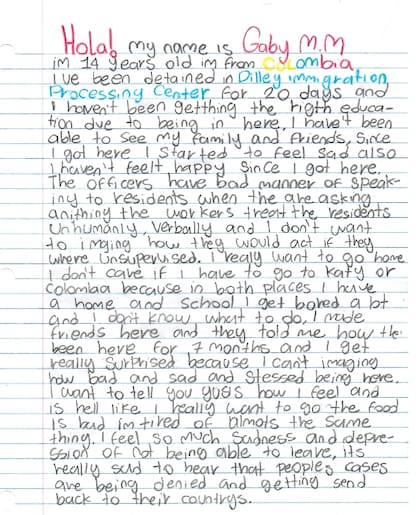 Hola! my name is Gaby M.M
im 14 years old im from COLOmbia
I've been detained in Dilley immigration
Processing Center for 20 days and
I haven't been getthing the rigth educa-
tion due to being in here, I have't been
able to see my family and friends, Since
I got here I started to feel sad also
I haven't feelt happy Since I got here.
The officers have bad manner of speak-
ing to residents when the are asking
anithing the workers treat the residents
unhumanly, verbally and I don't want
to imging how they would act if they
where unsupervised. I realy want to go home
I don't care if I have to go to Katy or
Colombia because in both places I have
a home and school, I get bored a lot
and I don't know what to do, I made
friends here and they told me how the
been here for 7 months and I get
really surprised because I can't imaging
how bad and sad and stessed being here.
I want to tell you guys how I feel and
is hell like I really want to go the food
is bad im tired of almots the same
thing. I feel so much Sadness and depre-
ssion of not being able to leave, its
really sad to hear that peoples cases
are being denied and getting send
back to their countrys.